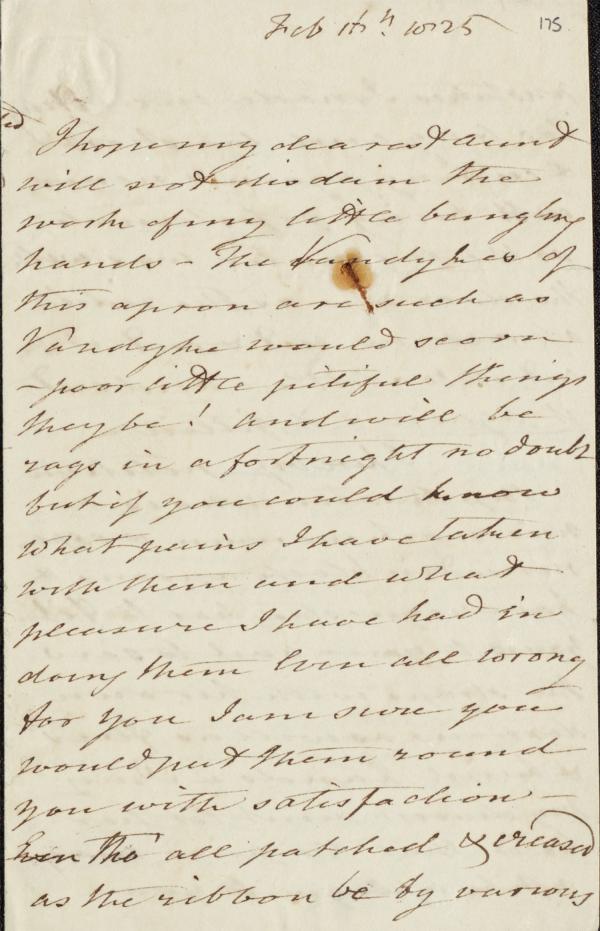 Feb 1825
175
I hope my dearest Aunt
will not disdain the
work of my little bungling
hands - The Vandykes of
this apron are such as
Vandyke would scorn
- poor little pitiful things
they be! and will be
rags in a fortnight no doubt
but if you could know
what pains I have taken
with them and what
pleasure I have had in
doing them Even all wrong
for you I am sure you
would put them round
you with satisfaction -
Even tho' all patched & creased
as the ribbon be by various